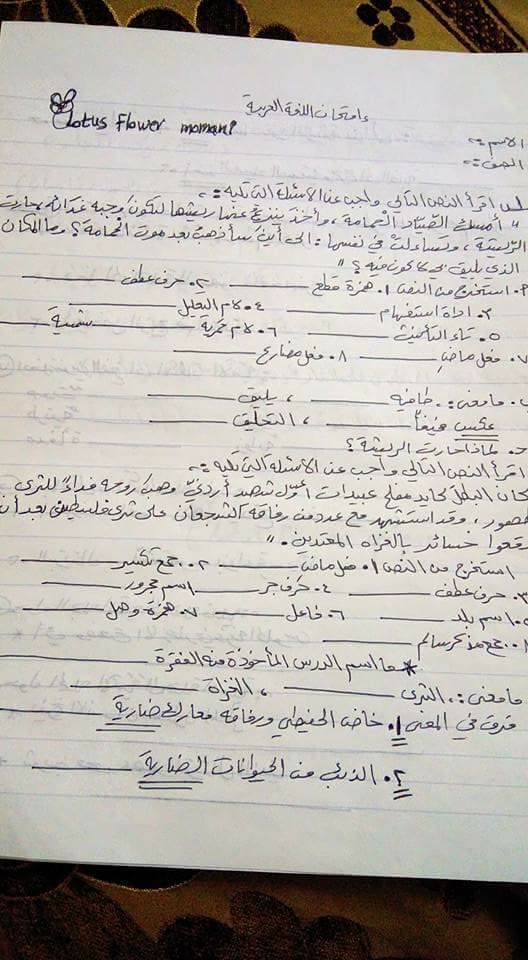 امتحان اللغة العربية
Lotus Flower momani
الاسم :-
الصف :-
اقرأ النص التالي واجب عن الاسئلة التي تليه :-
" أمسك الصياد الحمامة ، وأخذ ينتزع عنها ريشها لتكون وجبة غدائه ، حارت
الريشة ، وتساءلت في نفسها : الى أين سأذهب بعد موت الحمامة ؟ وما المكان
الذي يليق بي كي أكون فيه ؟ "
استخرج من النص ١. همزة قطع ______ ٢. حرف عطف ______
٣. اداة استفهام ______ ٤. لام التعليل ______
٥. تاء التأنيث ______ ٦. لام قمرية ______ شمسية ______
٧. فعل ماضٍ ______ ٨. فعل مضارع ______
ما معنى :- طافية ______ ، يليق ______
عكس عنيفاً ______ ، التحلّق ______
لماذا حارت الريشة ؟
اقرأ النص التالي واجب عن الاسئلة التي تليه :-
كان البطل كايد مفلح عبيدات أول شهيد أردنيّ وهب روحه فداءً للثرى
الطهور ، وقد استشهد مع عدد من رفاقه الشجعان على ثرى فلسطين بعد أن
أوقعوا خسائر بالغزاة المعتدين . "
استخرج من النص ١. فعل ماضٍ ______ ٢. جمع تكسير ______
٣. حرف عطف ______ ٤. حرف جر ______ اسم مجرور ______
٥. اسم بلد ______ ٦. فاعل ______ ٧. همزة وصل ______
٨. جمع مذكر سالم ______
* ما اسم الدرس المأخوذة منه الفقرة ______
ما معنى :. الثرى ______ ، الغزاة ______
فرق في المعنى ١. خاض الحنيطي ورفاقه معارك ضارية ______
٢. الذئب من الحيوانات الضارية ______